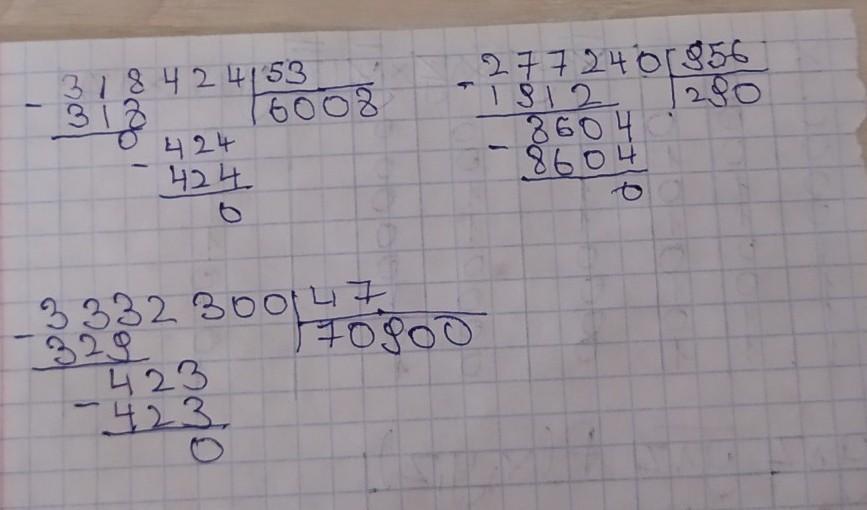 - 318424 | 53
318 | 6008
0 424
- 424
0
- 277240 | 956
1912 | 290
8604
- 8604
0
- 3332300 | 47
329 | 70900
423
- 423
0